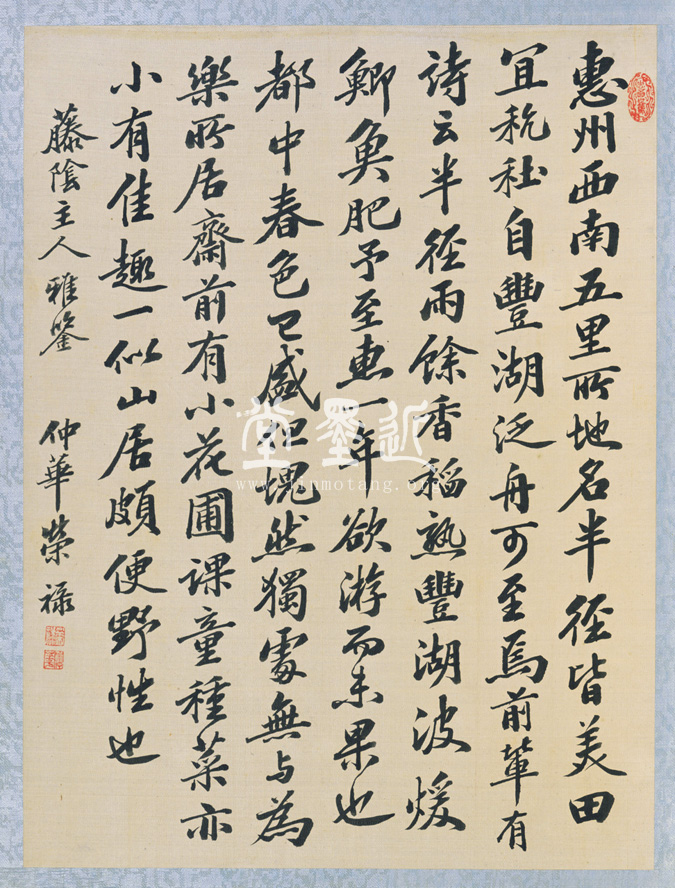 惠州西南五里所地名半径皆美田
宜秔秫自豐湖泛舟可至焉前輩有
詩云半径雨餘香稻熟豐湖波煖
鲫魚肥予至惠一年欲游而未果也
都中春色已盛但塊然獨處無与為
樂所居齋前有小花圃课童種菜亦
小有佳趣一似山居頗便野性也
藤陰主人雅鉴
仲華榮禄
近墨堂
www.jinmotang.org